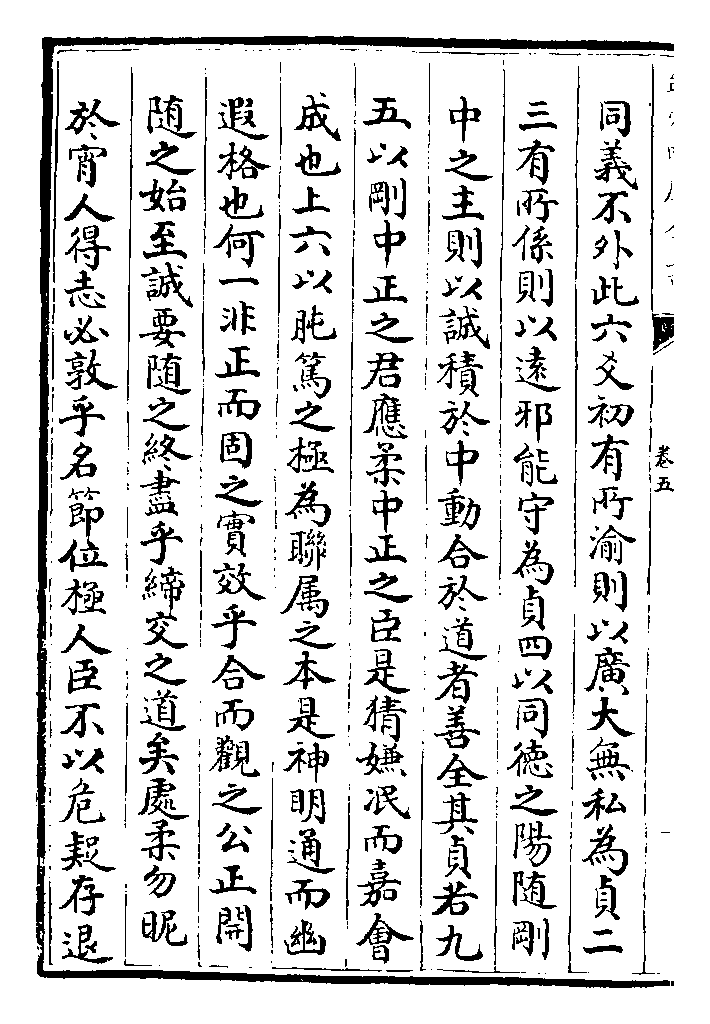 同義不外此六爻初有所渝則以廣大無私為貞二
三有所係則以遠邪能守為貞四以同德之陽隨剛
中之主則以誠積於中動合於道者善全其貞若九
五以剛中正之君應柔中正之臣是猜嫌泯而嘉會
成也上六以肫篤之極為聯属之本是神明通而幽
遐格也何一非正而固之實效乎合而觀之公正開
随之始至誠要随之終盡乎締交之道矣處柔勿昵
於宵人得志必敦乎名節位極人臣不以危疑存退
卷五